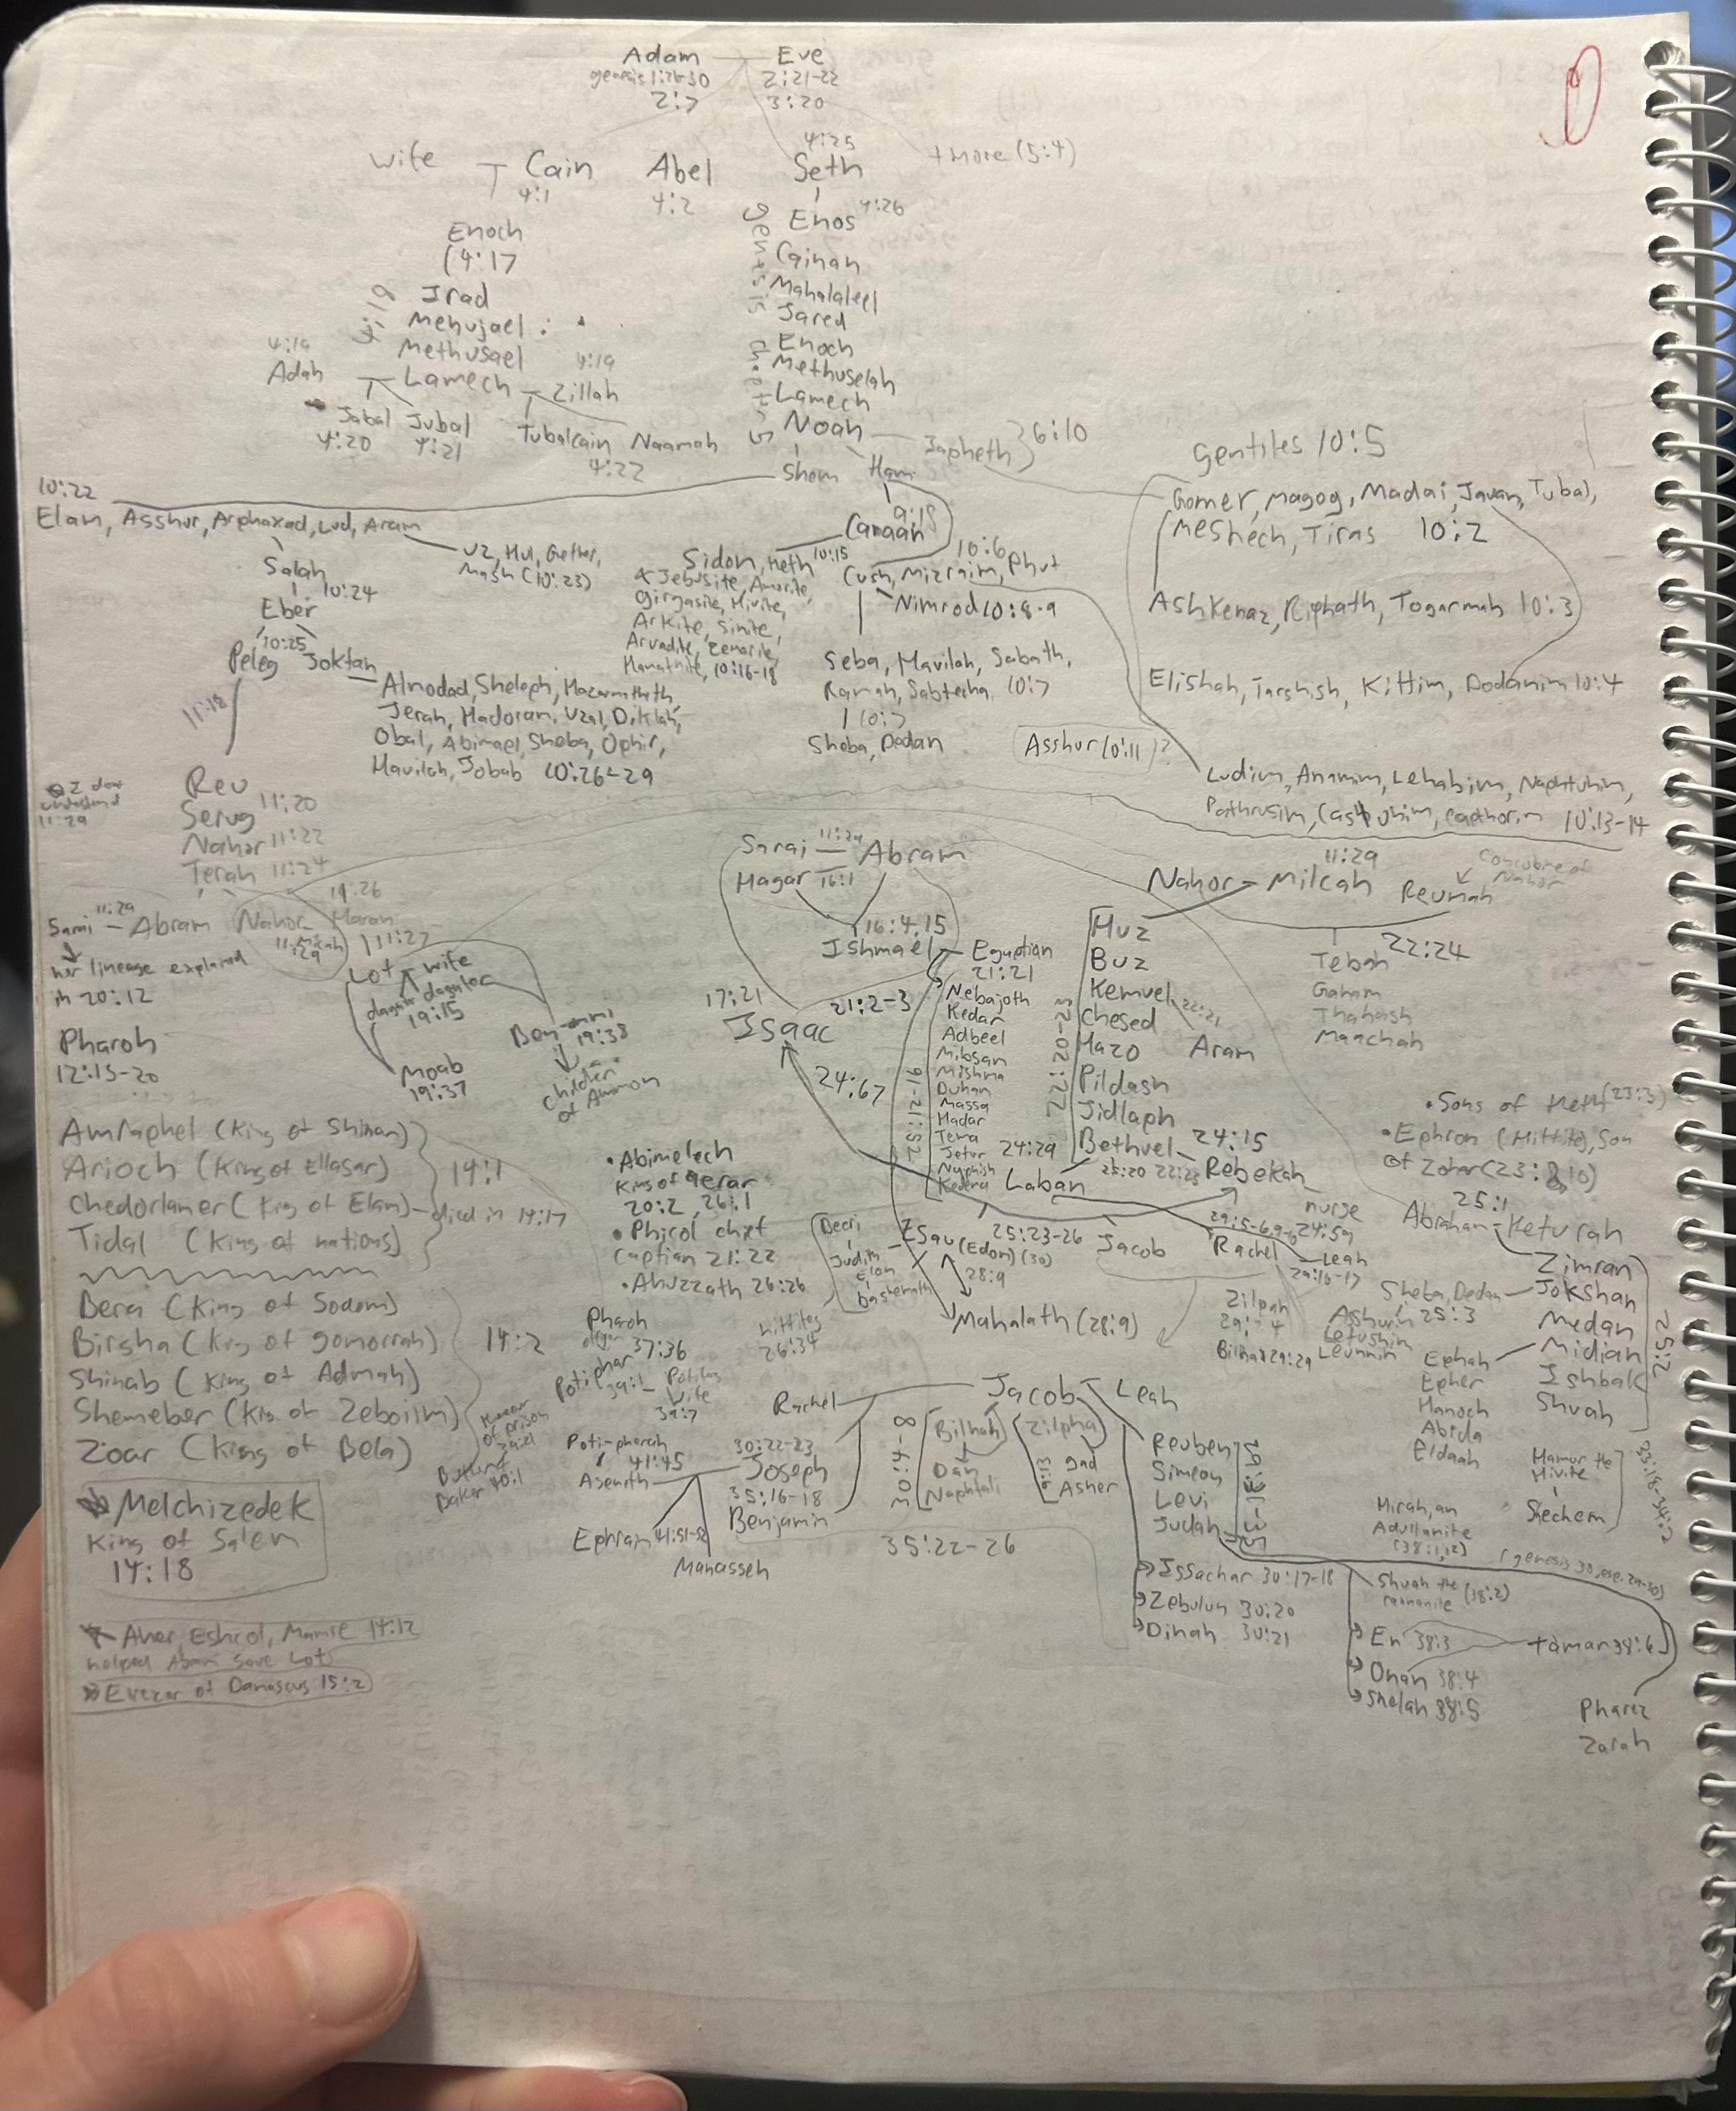 Adam Eve
genesis 1:26-30 2:21-22
2:7 3:20
4:25
wife Cain Abel Seth + more (5:4)
4:1 4:2
Enos 4:26
Enoch
(4:17
Cainan
Irad
Mahalaleel
Mehujael
Jared
Methusael
Enoch
4:19 4:19
Methuselah
Adah Lamech Zillah
Lamech
Jabal Jubal Tubalcain Naamah
4:20 4:21 4:22
Noah Japheth 6:10
Shem Ham
gentiles 10:5
Gomer, Magog, Madai, Javan, Tubal,
Meshech, Tiras 10:2
Ashkenaz, Riphath, Togarmah 10:3
Elishah, Tarshish, Kittim, Dodanim 10:4
10:22
Elam, Asshur, Arphaxad, Lud, Aram
Uz, Hul, Gether,
Mash (10:23)
Salah
10:24
Eber
10:25
Peleg Joktan
11:18
Almodad, Sheleph, Hazarmaveth,
Jerah, Hadoran, Uzal, Diklah,
Obal, Abimael, Sheba, Ophir,
Havilah, Jobab 10:26-29
9:18
Canaan
Sidon, Heth 10:15
+ Jebusite, Amorite,
Girgasite, Hivite,
Arkite, Sinite,
Arvadite, Zemarite,
Hamathite, 10:16-18
10:6
Cush, Mizraim, Phut
Nimrod 10:8-9
Seba, Havilah, Sabtah,
Ramah, Sabtecha, 10:7
10:7
Sheba, Dedan
Asshur (10:11)?
Ludim, Anamim, Lehabim, Naphtuhim,
Pathrusim, Casluhim, Capthorim 10:13-14
I don't
understand
11:29
Reu
Serug 11:20
Nahor 11:22
Terah 11:24
11:26
Sarai 11:29 Abram Nahor Haran
11:29 11:27
her lineage explained
in 20:12
Lot wife
19:15
Moab
19:37
19:38
children
of Ammon
Pharoh
12:15-20
Sarai 11:29 Abram
Hagar 16:1
16:4,15
Ishmael Egyptian
21:21
17:21 21:2-3
Isaac
24:67
Nebajoth
Kedar
Adbeel
Mibsam
Mishma
Duhan
Massa
Hadar
Tema
Jetur
Naphish
Kedema
25:12-16
11:29
Nahor - Milcah
Concubine of
Nahor
Reumah
22:24
Tebah
Gaham
Thahash
Maachah
Huz
Buz
Kemuel 22:21
Chesed
Hazo Aram
Pildash
Jidlaph
Bethuel 24:15
22:20-23
24:29
Laban 25:20 22:23 Rebekah
nurse
24:59
• Sons of Heth (23:3)
• Ephron (Hittite), Son
of Zohar (23:8,10)
Amraphel (King of Shinar)
Arioch (King of Ellasar) 14:1
Chedorlamer (King of Elam) - died in 14:17
Tidal (King of nations)
Bera (King of Sodom)
Birsha (King of gomorrah) 14:2
Shinab (King of Admah)
Shemeber (King of Zeboiim)
Zoar (King of Bela)
Melchizedek
King of Salem
14:18
Aner, Eshcol, Mamre 14:12
helped Abram save Lot
Eliezer of Damascus 15:2
• Abimelech
King of gerar
20:2, 26:1
• Phicol chief
captian 21:22
• Ahuzzath 26:26
Beeri
Judith
Elon
bashemath
hittites
26:34
Esau (Edom) (30) 25:23-26 Jacob
28:9
Mahalath (28:9)
Rachel Leah
29:16-17
Zilpah
Bilhah 29:29
25:1
Abraham - Keturah
Zimran
Jokshan
Medan
Midian
Ishbak
Shuah
25:2
Sheba, Dedan
25:3
Asshurim
Letushim
Leummim
Ephah
Epher
Hanoch
Abida
Eldaah
Hamor the
Hivite
Shechem
Hirah, an
Adullamite
(38:1,12)
Pharoh
37:36
Potiphar
39:1
Potiphar's
wife
39:7
keeper
of prison
39:21
Butler
Baker 40:1
Poti-pherah
41:45
Asenath
Ephraim 41:51-52
Manasseh
Rachel Jacob Leah
30:22-23
Joseph
35:16-18
Benjamin
30:4-8
Bilhah
Dan
Naphtali
Zilpha
Gad
Asher
35:22-26
Reuben
Simeon
Levi
Judah
Issachar 30:17-18
Zebulun 30:20
Dinah 30:21
Shuah the
cannanite (38:2)
Er 38:3
Onan 38:4
Shelah 38:5
tamar 38:6
Pharez
Zarah